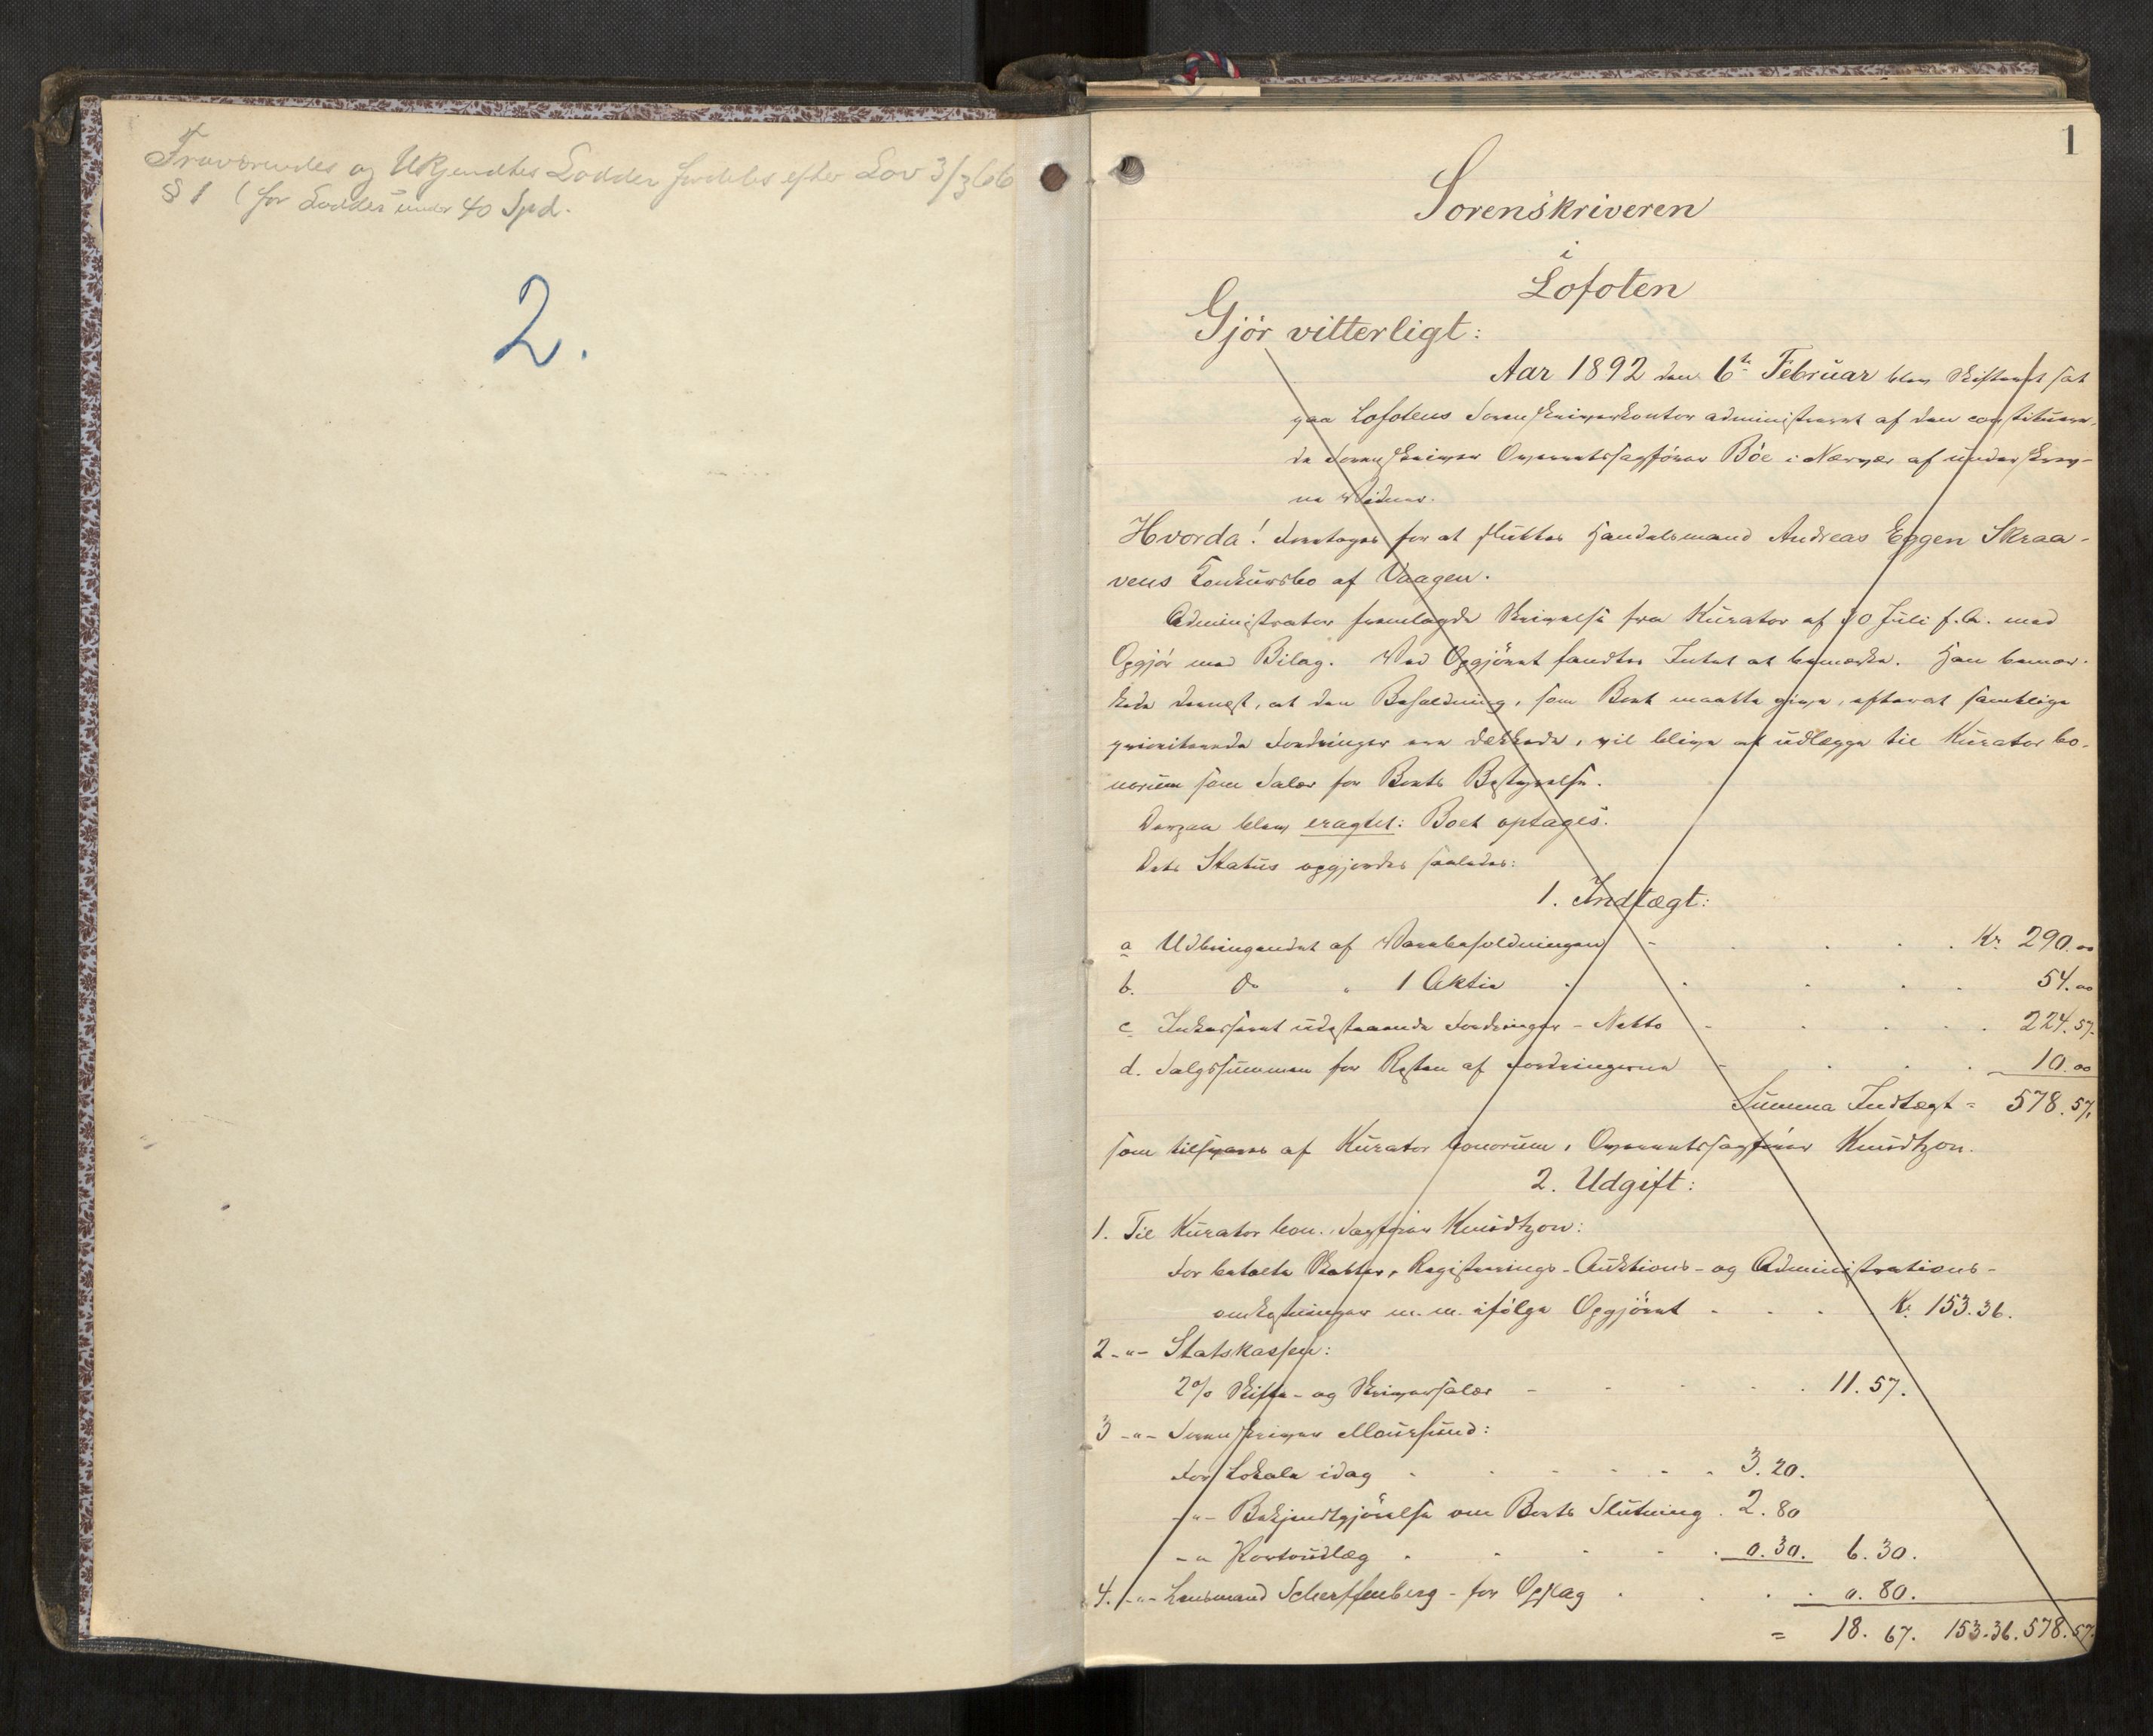 Fraværendes og Ukjendtes Lodder fordeles efter Lov 3/3 66
§ 1 (for Lodder under 40 Spd.
2.
1
Sorenskriveren
i
Lofoten
Gjör vitterligt:
Aar 1892 den 6te Februar blev Skifteret sat
paa Lofotens Sorenskriverkontor administreret af den constitueren-
de Sorenskriver Overretssagförer Böe i Nærvær af underskrev-
ne Vidner.
Hvorda! Foretoges for at sluttes Handelsmand Andreas Eggen Skraa-
vens Konkursbo af Vaagen.
Administrator fremlagde Skrivelse fra Kurator af 10 Juli f. A. med
Opgjör med Bilag. Ved Opgjöret fandtes Intet at bemærke. Han bemær-
kede dernæst, at den Beholdning, som Boet maatte give, efterat samtlige
prioriterede Fordringer ere dækkede, vil blive at udlægge til Kurator bo-
norum som Salær for Boets Bestyrelse.
Derpaa blev eragtet: Boet optages.
Dets Status opgjordes saaledes:
1. Indtægt:
a Udbringendet af Varebeholdningen - Kr. 290.00
b. Do " 1 Aktie 54.00
c Inkasseret udestaaende Fordringer - Netto - 224.57.
d. Salgssummen for Resten af Fordringerne - 10.00
Summa Indtægt = 578.57.
som tilsvares af Kurator bonorum, Overretssagförer Knudtzon.
2. Udgift:
1. Til Kurator bon. Sagförer Knudtzon:
For betalte Skatter, Registrerings- Auktions- og Administrations-
omkostninger m. m. ifölge Opgjöret - Kr. 153.36.
2 -"- Statskassen:
2% Skifte- og Skriversalær - 11.57.
3 -"- Sorenskriver Maursund:
For Lokale idag 3.20.
-"- Bekjendtgjörelse om Boets Slutning 2.80
-"- Portoudlæg 0.30. 6.30.
4. -"- Lensmand Scherffenberg - for Opslag 0.80.
= 18.67. 153.36. 578.57.